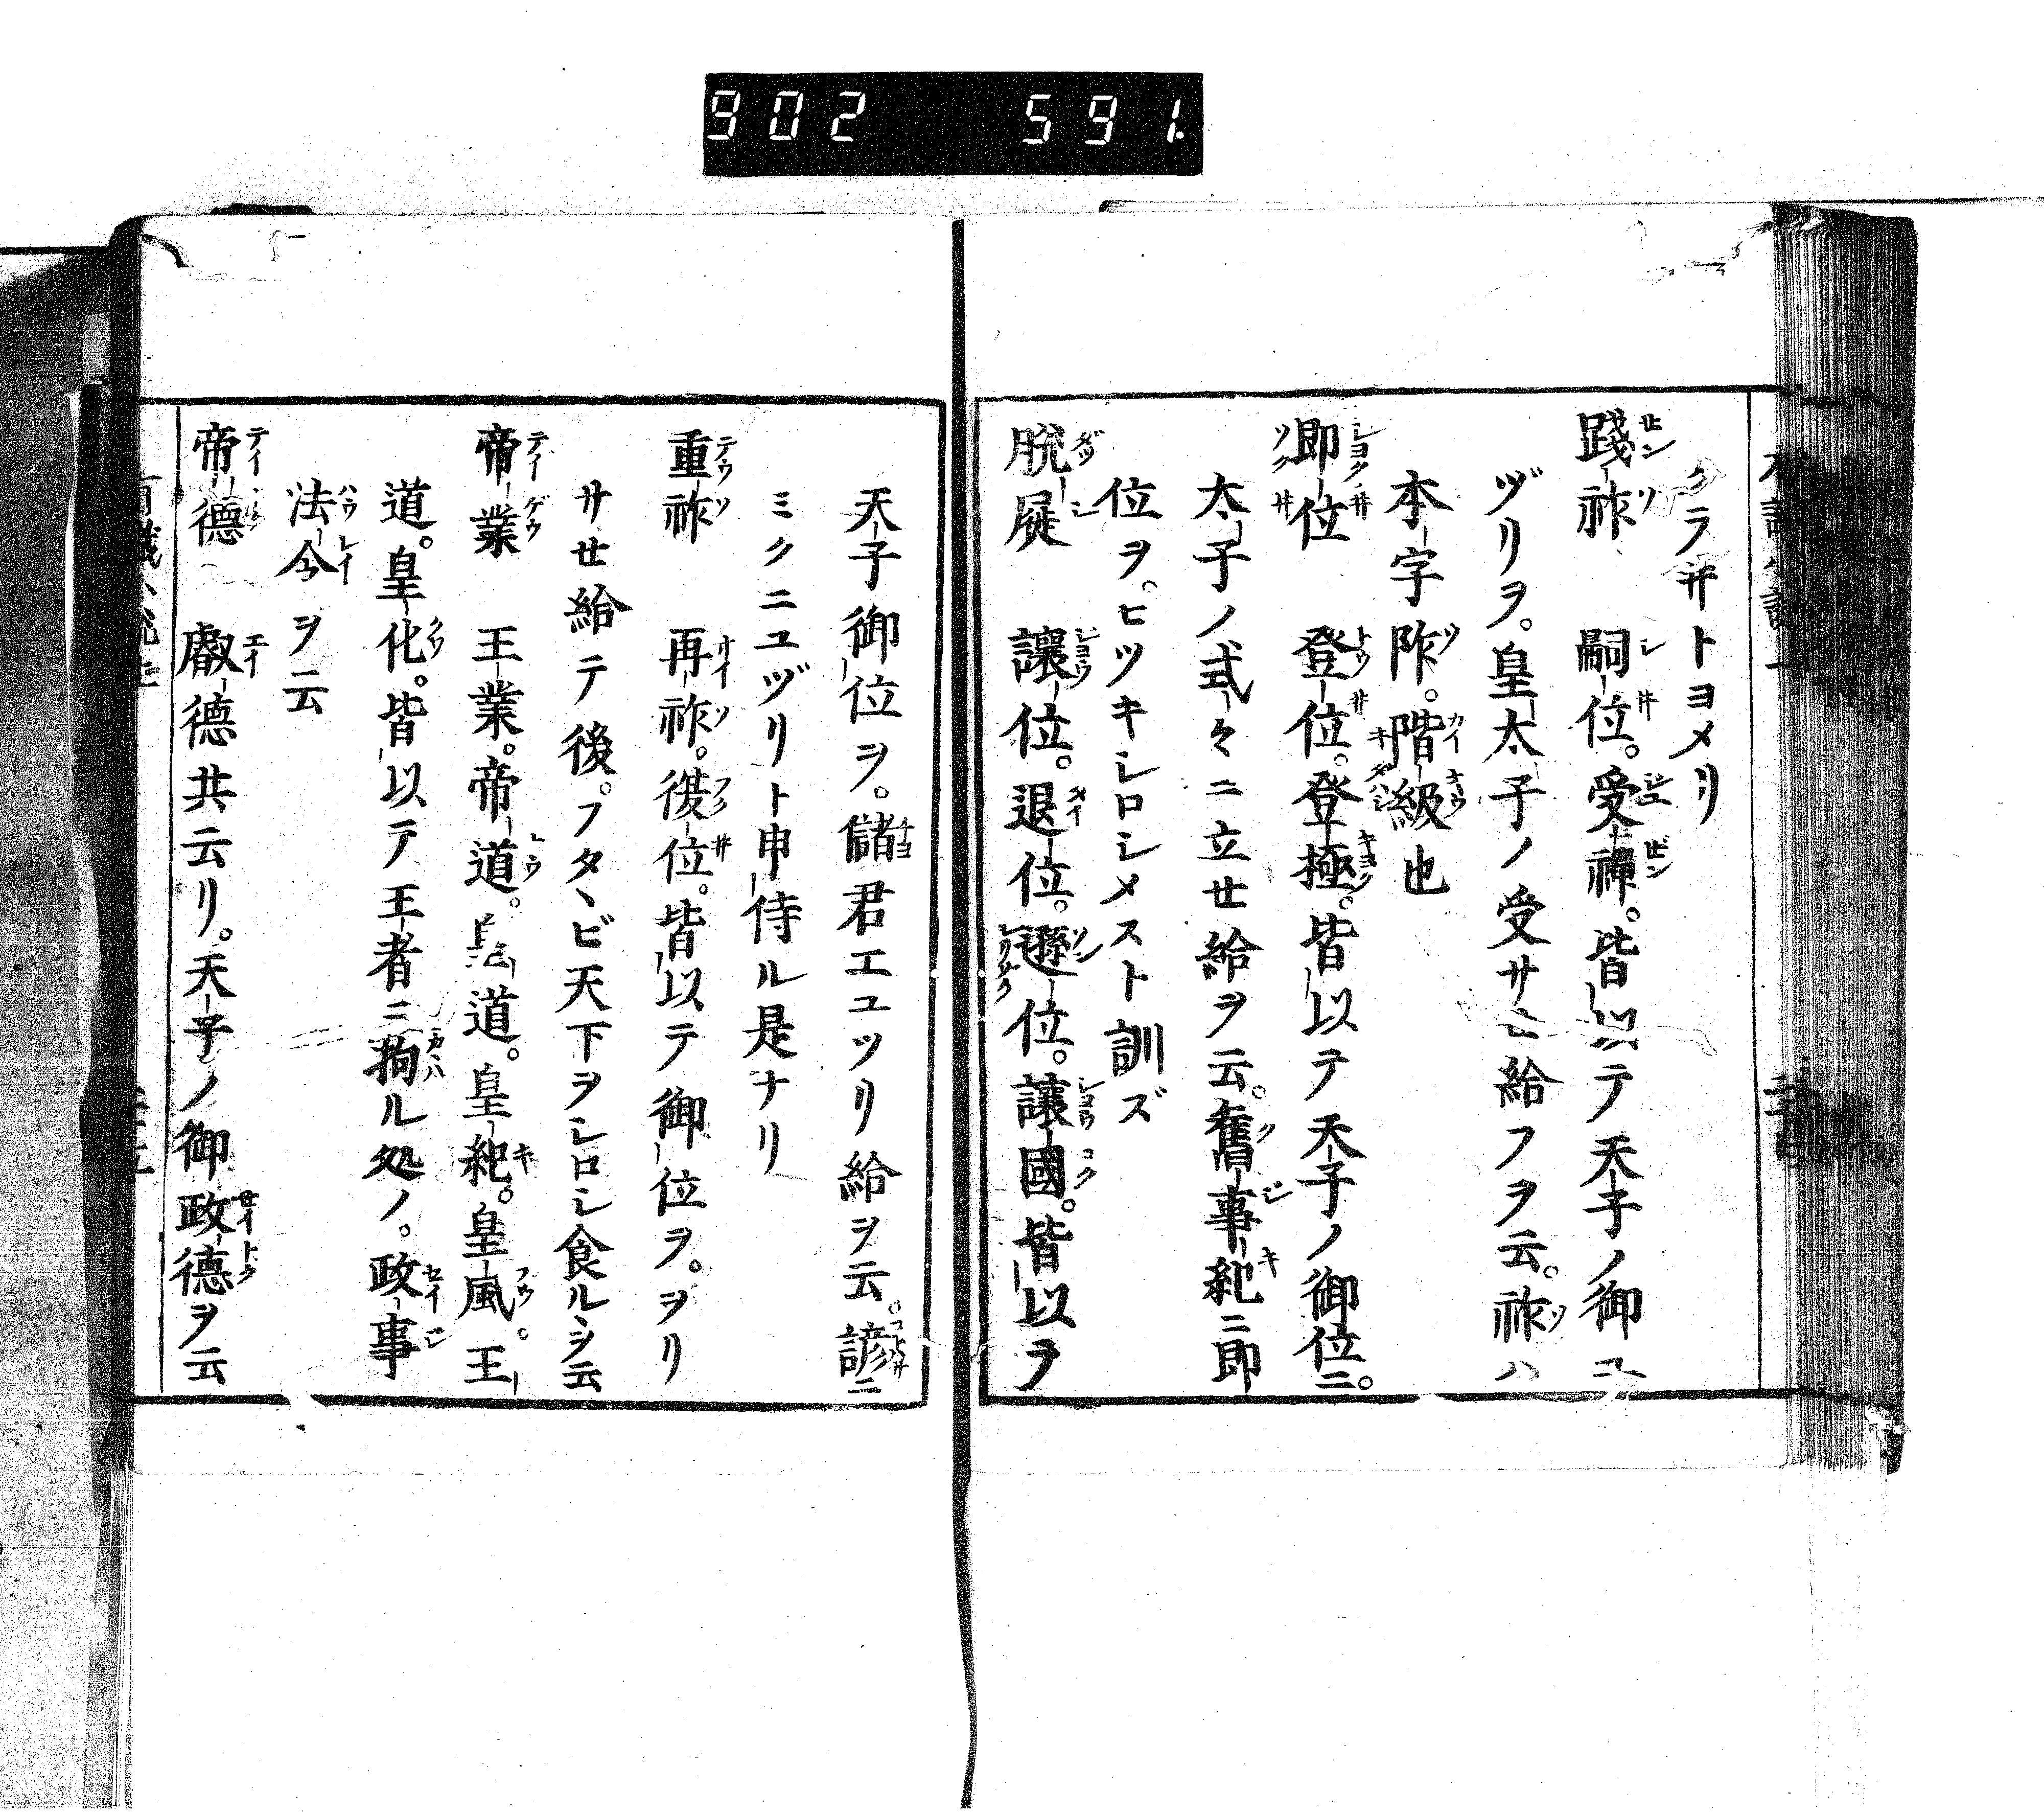 902 591.
クラヰトヨメリ
踐祚 嗣位。受禪。皆以テ天子ノ御ユ
ヅリヲ。皇太子ノ受サセ給フヲ云。祚ハ
本字阼。階級也
即位 登位。登極。皆以テ天子ノ御位ニ。
太子ノ式々ニ立セ給ヲ云。舊事紀ニ即
位ヲ。ヒツキシロシメスト訓ズ
脱屣 讓位。退位。遜位。讓國。皆以ラ
天子御位ヲ。儲君エユツリ給ヲ云。諺ニ
ミクニユヅリト申侍ル是ナリ
重祚 再祚。復位。皆以テ御位ヲ。ヲリ
サセ給テ後。フタヽビ天下ヲシロシ食ルヽヲ云
帝業 王業。帝道。道。皇紀。皇風。王
道。皇化。皆以テ王者ニ拘ル処ノ。政事
法令ヲ云
帝德 叡德共云リ。天子ノ御政德ヲ云